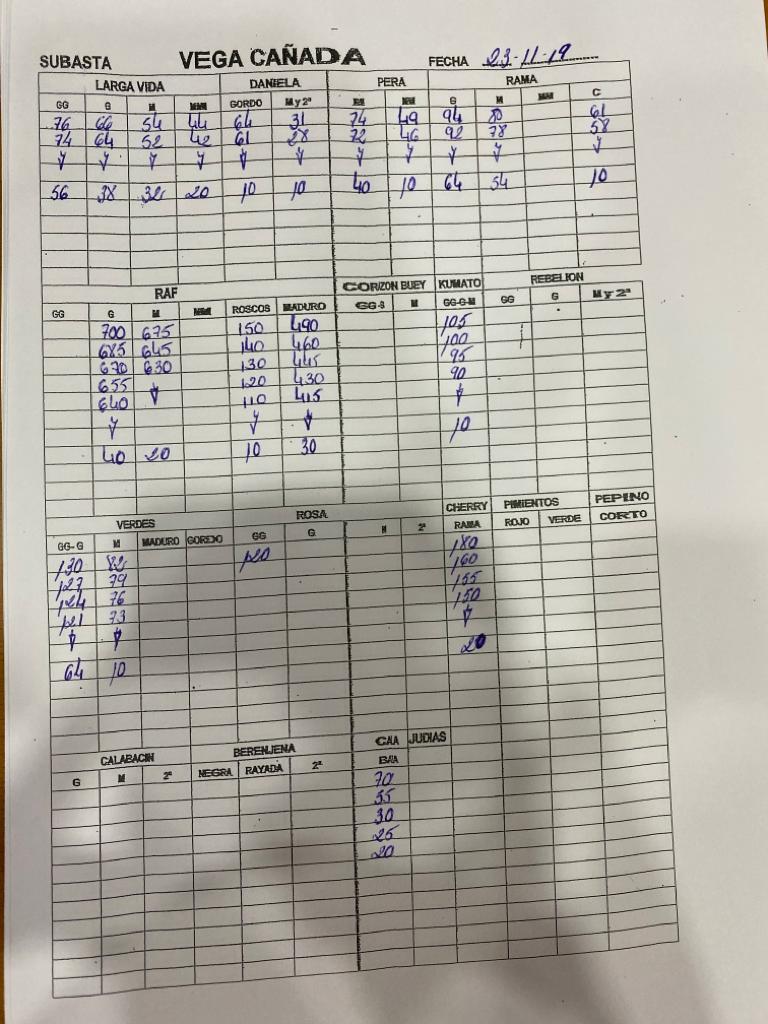 SUBASTA VEGA CAÑADA FECHA 23-11-19
LARGA VIDA DANIELA PERA RAMA
GG G M MM GORDO M y 2ª M MM G M MM C
76 66 54 44 64 31 74 49 94 80 61
74 64 52 42 61 28 72 46 92 78 58
56 38 32 20 10 10 40 10 64 54 10
RAF CORIZON BUEY KUMATO REBELION
GG G M MM ROSCOS MADURO GG-G M GG-G-M GG G M y 2ª
700 675 150 490 105
685 645 140 460 100
670 630 130 445 95
655 120 430 90
640 110 415
40 20 10 30 10
VERDES ROSA CHERRY PIMIENTOS PEPINO
GG-G M MADURO GORDO GG G M 2ª RAMA ROJO VERDE CORTO
130 82 120 180
127 79 160
124 76 155
121 73 150
64 10 20
CALABACIN BERENJENA CAA JUDIAS
G M 2ª NEGRA RAYADA 2ª BAA
70
55
30
25
20